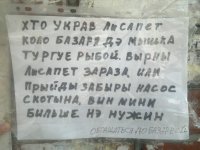 ХТО УКРАВ ЛИСАПЕТ
КОЛО БАЗАРЯ ДЭ МЫШКА
ТУРГУЕ РЫБОЙ. ВЫРНЫ
ЛИСАПЕТ ЗАРАЗА. ИЛИ
ПРЫЙДЫ ЗАБЫРЫ НАСОС
СКОТЫНА, ВИН МИНИ
БИЛЬШЕ НЭ НУЖИН
ОБРАЩАТЬСЯ ПО БАЗАРЕ